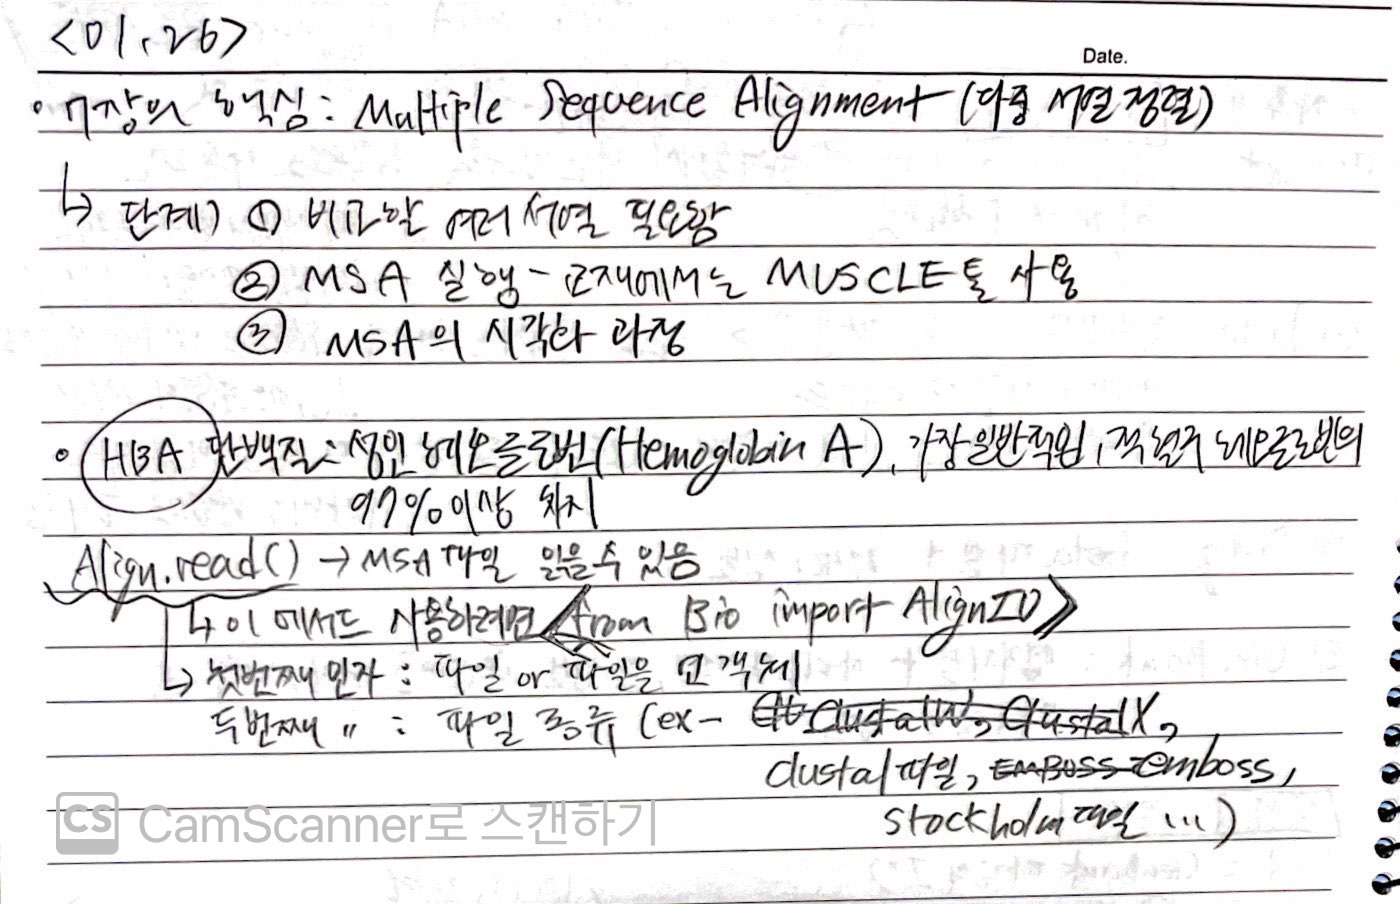 <01.26>
Date.
• 7장의 핵심: Multiple Sequence Alignment (다중 서열 정렬)
↳ 단계) ① 비교할 여러 서열 필요함
② MSA 실행 - 교재에서는 MUSCLE툴 사용
③ MSA의 시각화 과정
• HBA 단백질: 성인 헤모글로빈(Hemoglobin A), 가장 일반적임, 적혈구 헤모글로빈의
97%이상 차지
Align.read() → MSA 파일 읽을 수 있음
↳ 이 메서드 사용하려면 《from Bio import AlignIO》
↳ 첫번째 인자 : 파일 or 파일을 객체
두번째 〃 : 파일 종류 (ex- ClustalW, ClustalX,
clustal파일, EMBOSS emboss,
stockholm 파일 ...)
CS CamScanner로 스캔하기